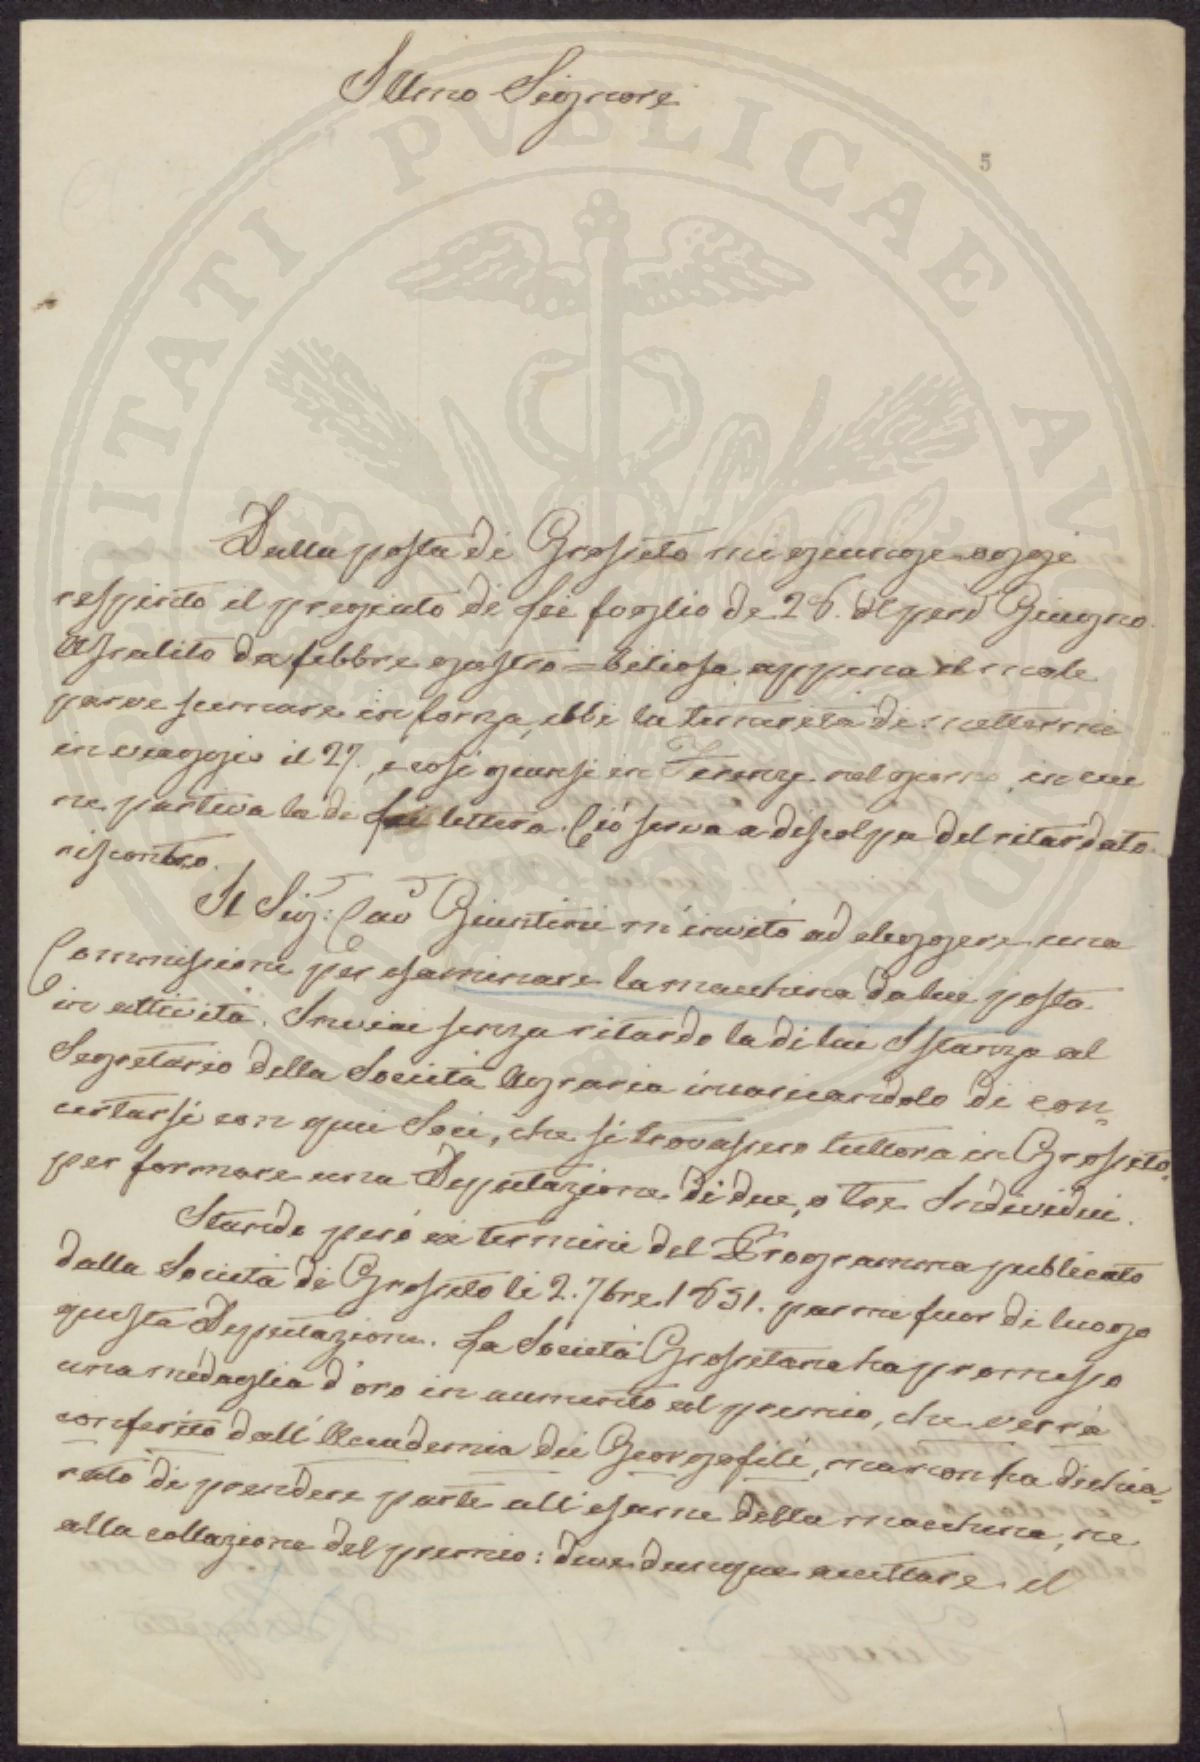 Illmo Signore
5
Dalla posta di Grosseto mi giunge oggi
respinto il pregiato di Lei foglio de 28. Giugno.
Assalito da febbre gastro=biliosa appena il male
parve scemare in forza, ebbi la temerità di mettermi
in viaggio il 27., e così giunsi in Firenze nel giorno, in cui
ne partiva la di Lei lettera. Ciò serva a discolpa del ritardato
riscontro.
Il Sig: Cav Giuntini m'invitò ad eleggere una
Commissione per esaminare la macchina da lui posta
in attività. Inviai senza ritardo la di lui Istanza al
Segretario della Società Agraria incaricandolo di con-
certarsi con quei Soci, che si trovassero tuttora in Grosseto,
per formare una Deputazione di due, o tre Individui.
Stando però ai termini del Programma publicato
dalla Società di Grosseto li 2. 7bre 1851. parmi fuor di luogo
questa Deputazione. La Società Grossetana ha promesso
una medaglia d'oro in aumento al premio, che verrà
conferito dall'Accademia dei Georgofili, ma non ha dichia-
rato di prendere parte all'esame della macchina, ne
alla collazione del premio: deve dunque accettare il
PVBLICAE